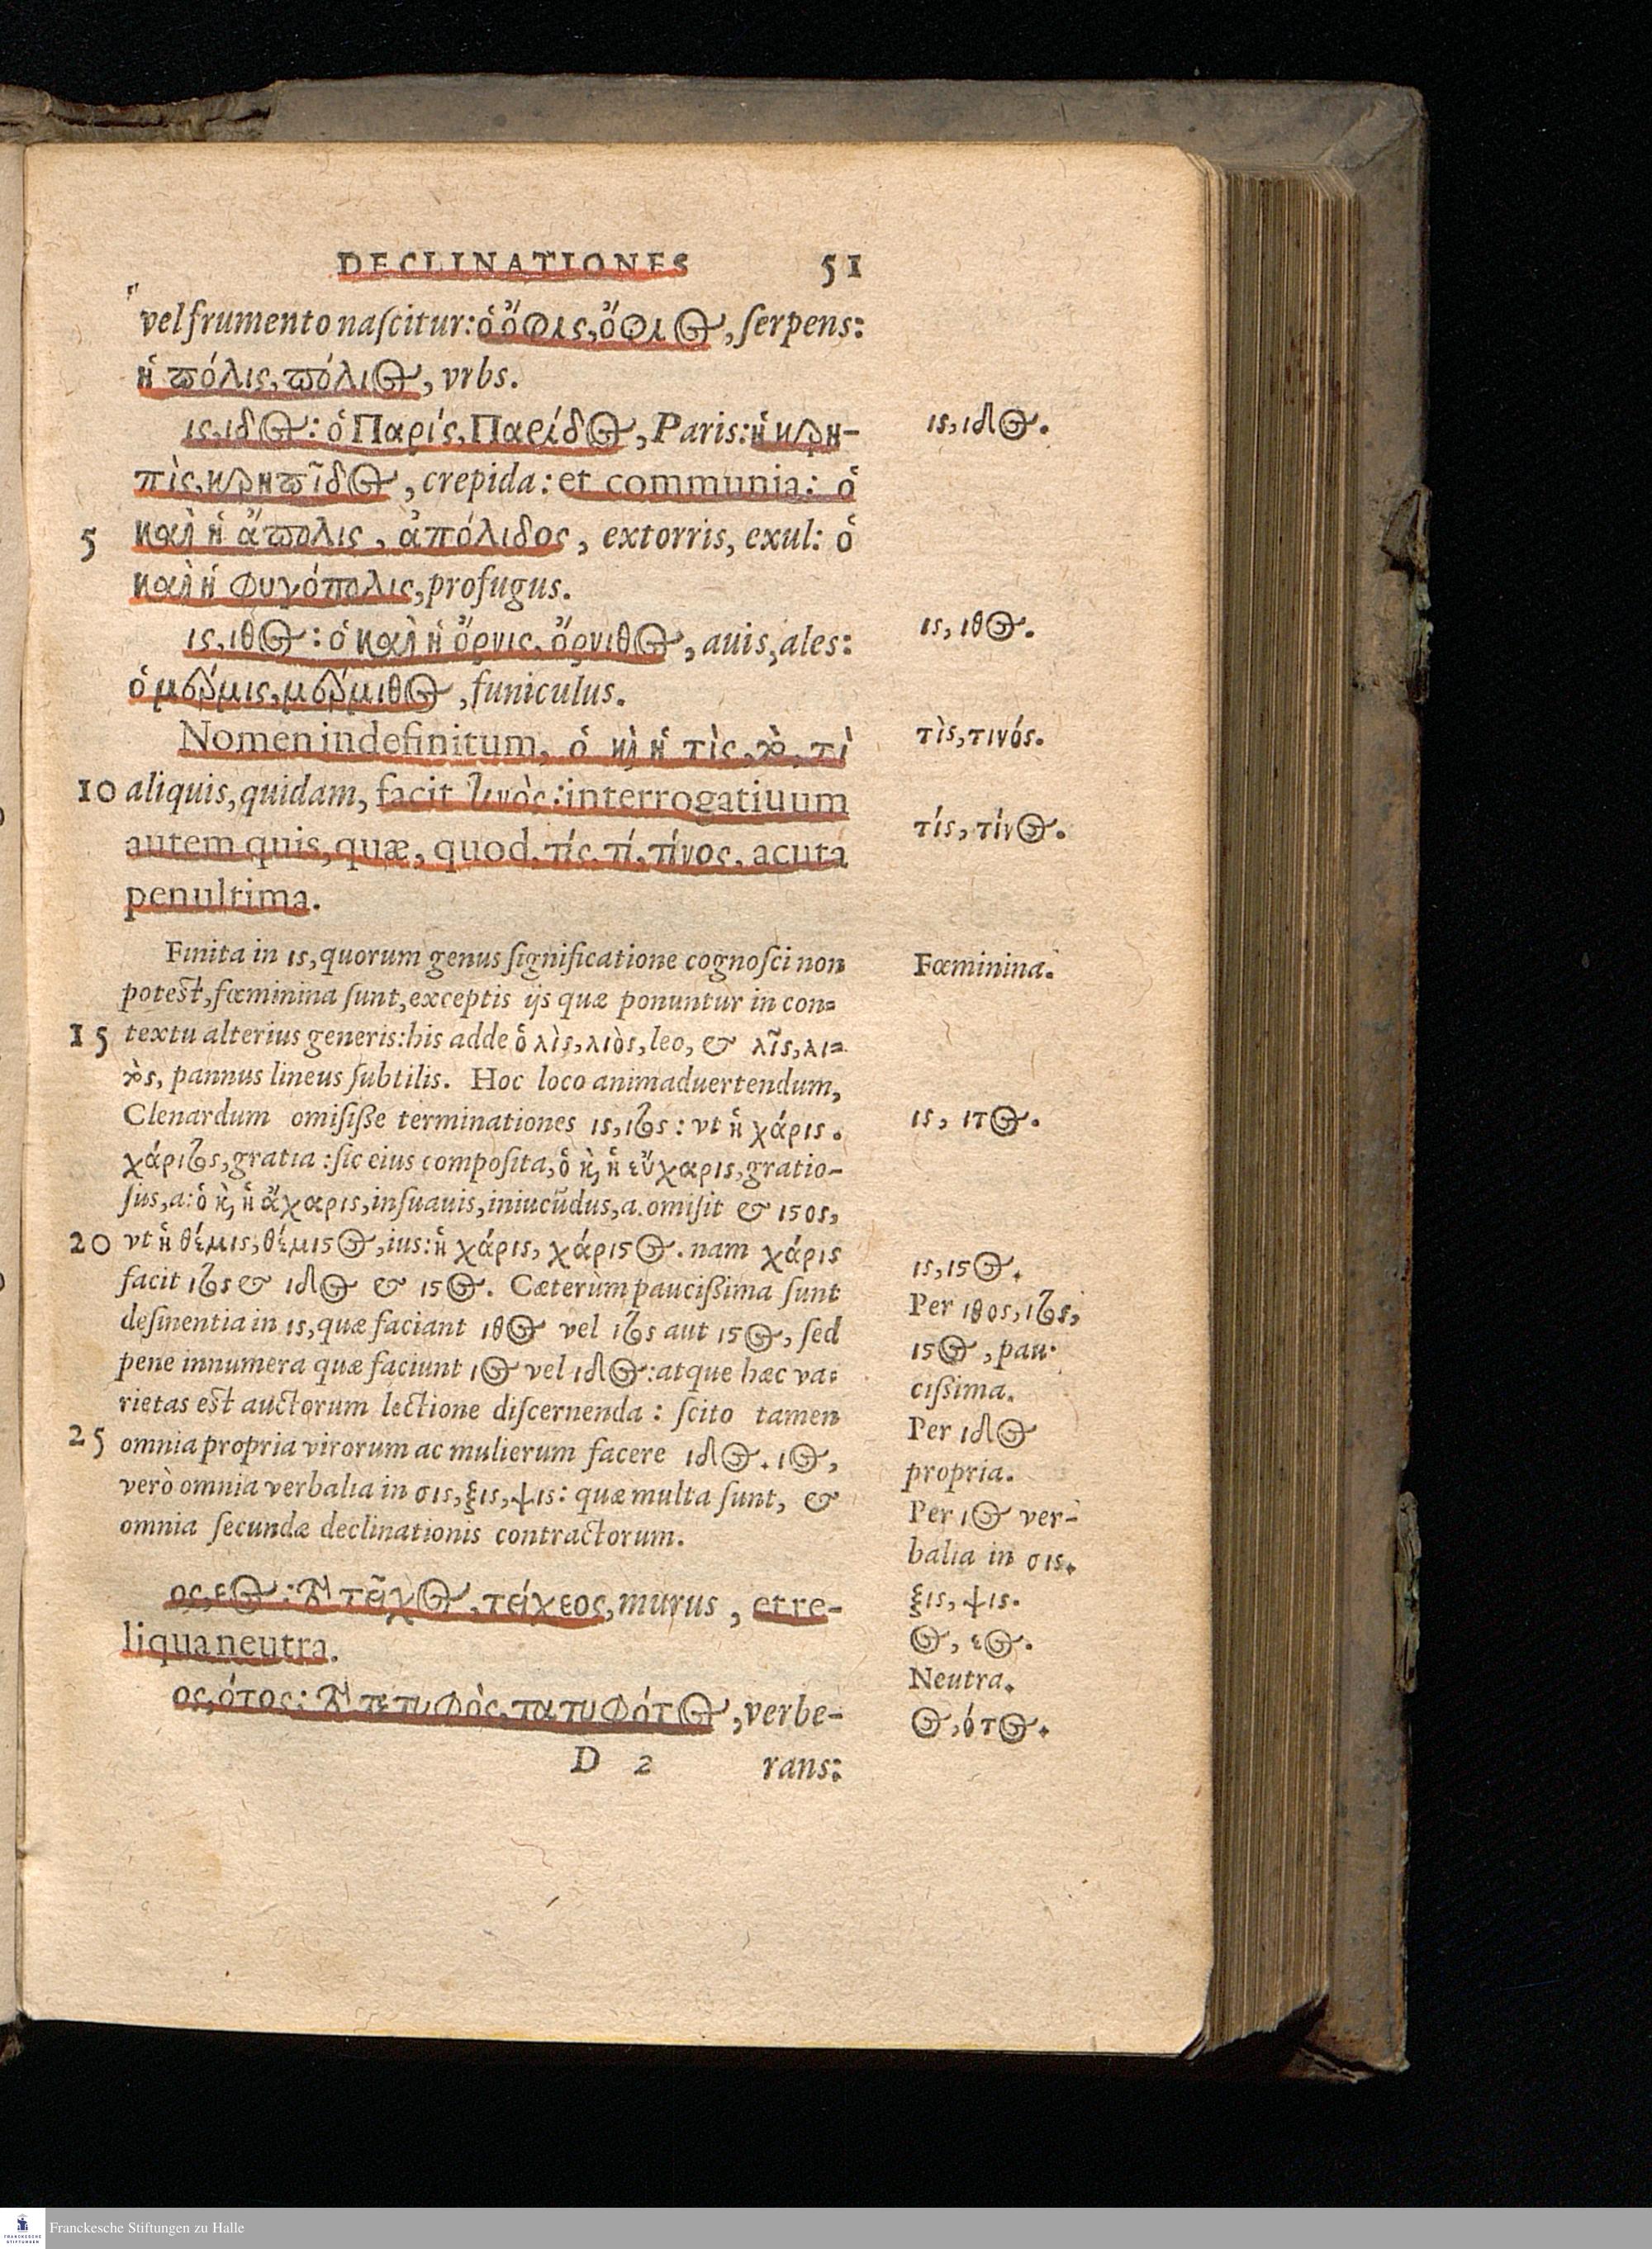 DECLINATIONES 51
vel frumento naſcitur: ὁ ὄφις, ὄφιος, ſerpens:
ἡ πόλις, πόλιος, vrbs.
ις, ιδος: ὁ Παρίς, Παρίδος, Paris: ἡ κρη-
πὶς, κρηπῖδος, crepida: et communia: ὁ
5 καὶ ἡ ἄπολις, ἀπόλιδος, extorris, exul: ὁ
καὶ ἡ φυγόπολις, profugus.
ις, ιθος: ὁ καὶ ἡ ὄρνις, ὄρνιθος, auis, ales:
ὁ μέρμις, μέρμιθος, funiculus.
Nomen indefinitum, ὁ καὶ ἡ τὶς, τὸ, τὶ
10 aliquis, quidam, facit τινὸς: interrogatiuum
autem quis, quæ, quod, τίς, τί, τίνος, acuta
penultima.
Finita in ις, quorum genus ſignificatione cognoſci non
poteſt, fœminina ſunt, exceptis ijs quæ ponuntur in con-
15 textu alterius generis: his adde ὁ λὶς, λιὸς, leo, & λῖς, λι-
τὸς, pannus lineus ſubtilis. Hoc loco animaduertendum,
Clenardum omiſiſſe terminationes ις, ιτος: vt ἡ χάρις.
χάριτος, gratia: ſic eius compoſita, ὁ καὶ ἡ εὔχαρις, gratio-
ſus, a: ὁ καὶ ἡ ἄχαρις, inſuauis, iniucūdus, a. omiſit & ιςος,
20 vt ἡ θέμις, θέμιςος, ius: ἡ χάρις, χάριςος. nam χάρις
facit ιτος & ιδος & ιςος. Cæterùm pauciſſima ſunt
deſinentia in ις, quæ faciant ιθος vel ιτος aut ιςος, ſed
pene innumera quæ faciunt ιος vel ιδος: atque hæc va-
rietas eſt auctorum lectione diſcernenda: ſcito tamen
25 omnia propria virorum ac mulierum facere ιδος. ιος,
verò omnia verbalia in σις, ξις, ψις: quæ multa ſunt, &
omnia ſecundæ declinationis contractorum.
ος, εος: τὸ τεῖχος, τείχεος, murus, et re-
liqua neutra.
ος, ότος: τὸ τετυφὸς, τατυφότος, verbe-
D 2 rans:
ις, ιδος.
ις, ιθος.
τὶς, τινός.
τίς, τίνος.
Fœminina.
ις, ιτος.
ις, ιςος.
Per ιθος, ιτος,
ιςος, pau-
ciſſima.
Per ιδος
propria.
Per ιος ver-
balia in σις.
ξις, ψις.
ος, εος.
Neutra.
ος, ότος.
Franckesche Stiftungen zu Halle
FRANCKESCHE
STIFTUNGEN